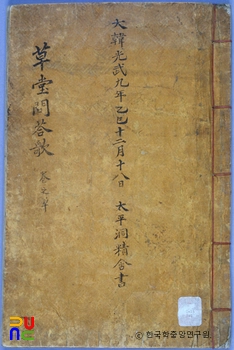 大韓光武九年乙巳十二月十八日 太平洞精舍書
草堂問答歌
ⓒ 한국학중앙연구원